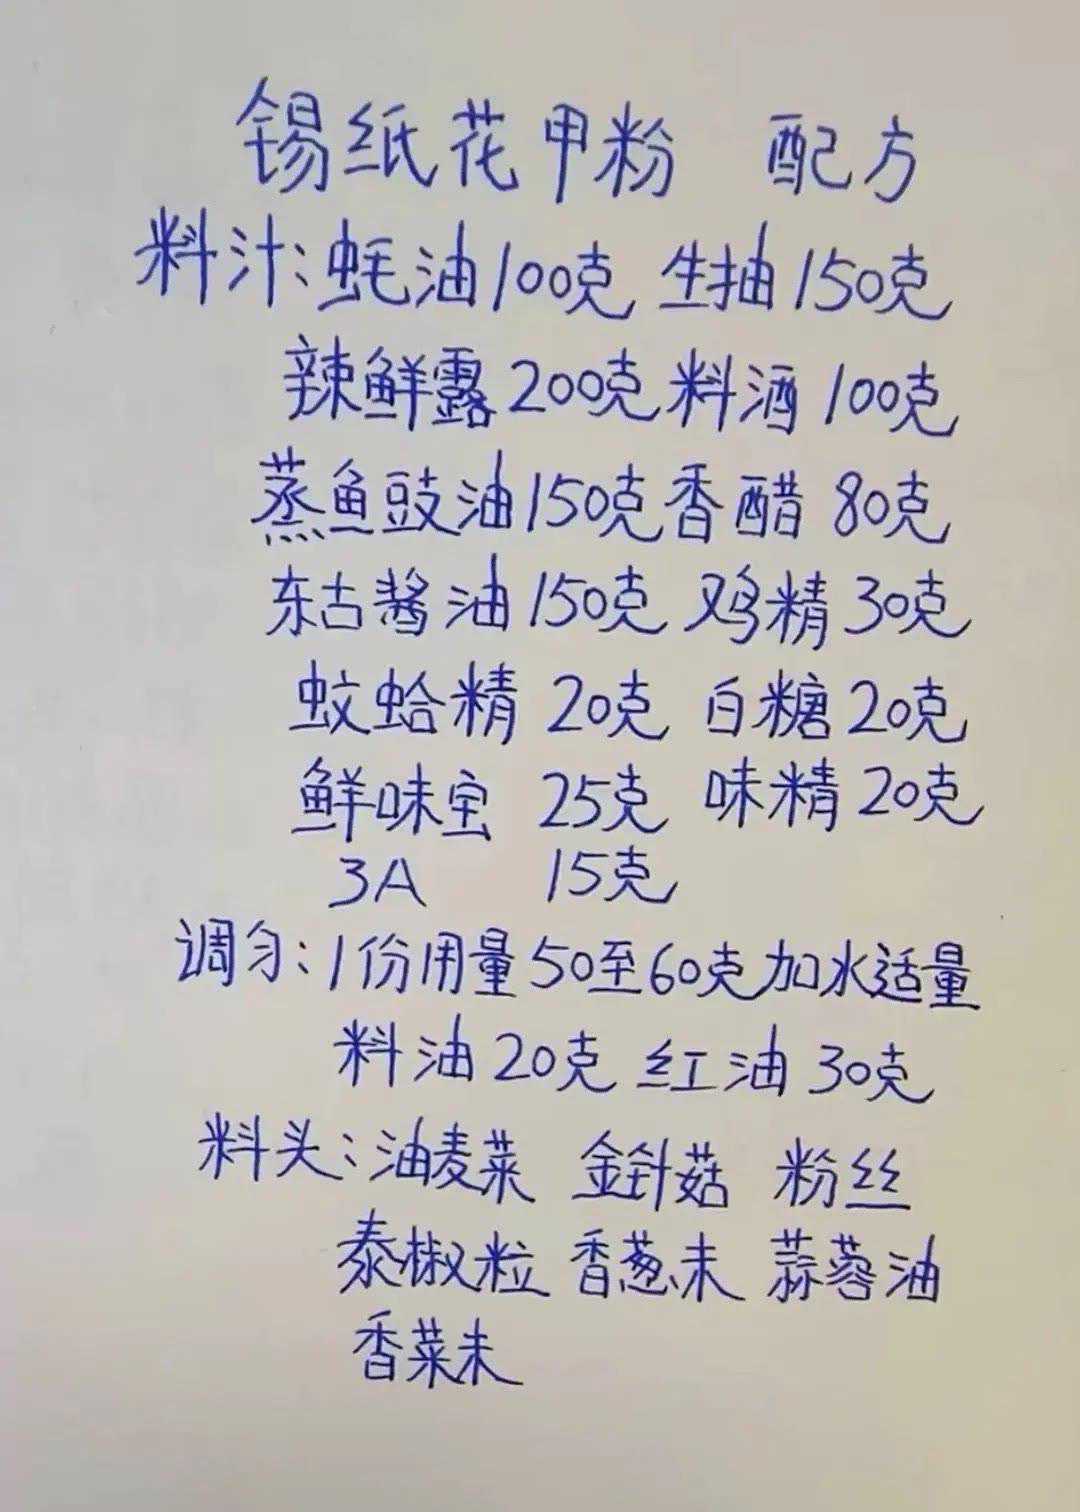 锡纸花甲粉 配方
料汁:蚝油100克 生抽150克
辣鲜露200克 料酒100克
蒸鱼豉油150克 香醋80克
东古酱油150克 鸡精30克
蚊蛤精 20克 白糖20克
鲜味宝 25克 味精20克
3A 15克
调匀:1份用量50至60克加水适量
料油20克 红油30克
料头:油麦菜 金针菇 粉丝
泰椒粒 香葱末 蒜蓉油
香菜末